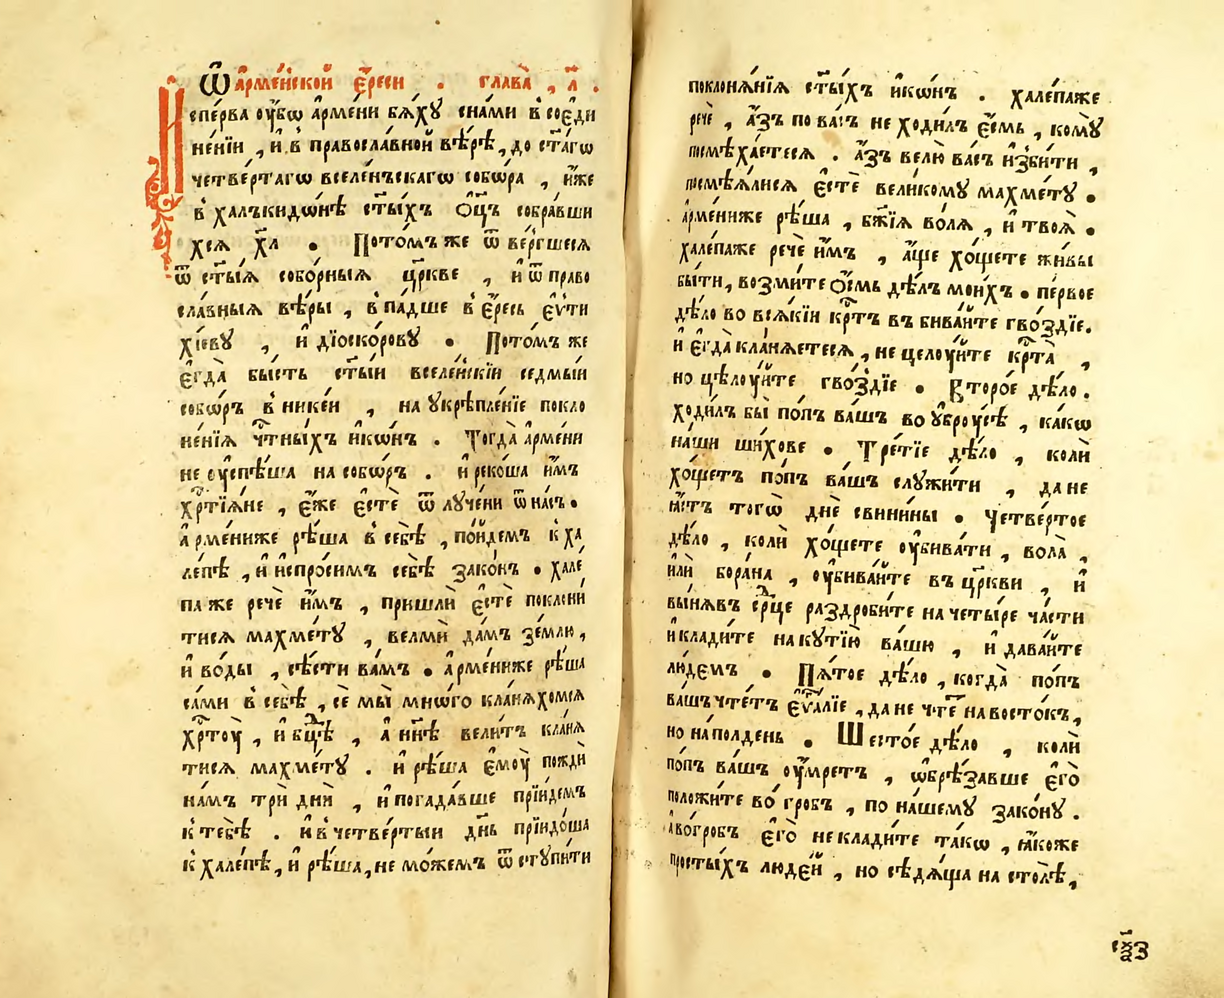 Ѿ а҆рме́нской є҆́реси . глава̀ , л҃ .
Исперва ᲂу҆́бѡ а҆рме́ни бѧ́хꙋ сна́ми в̾ соедѝ
не́нїи , и҆ в̾ правосла́вной вѣ́рѣ , до ст҃а́гѡ
четве́ртагѡ вселе́нъскагѡ собѡ́ра , и҆́же
в̾ халъкидѡ́нѣ ст҃ы́хъ ѻ҆ц҃ъ собра́вши
хсѧ х҃л . Пото́мъ же ѿ ве́ргшесѧ
ѿ ст҃ы́ѧ собо́рныѧ цр҃кве , и҆ ѿ право
сла́вныѧ вѣ́ры , в̾ па́дше в̾ є҆́ресь є҆ѵти
хі́евꙋ , и҆ дїоско́ровꙋ . Пото́мъ же
є҆гда̀ бы́сть ст҃ы́и вселе́нскїи седмы́и
собѡ́ръ в̾ нике́и , на ᲂукрѣпле́нїе покло
не́нїѧ чⷭ҇тны́хъ и҆кѡ́нъ . Тогда̀ а҆рме́ни
не ᲂуспѣ́ша на собѡ́ръ . и҆ реко́ша и҆̀мъ
хрⷭ҇тїѧ́не , є҆́же є҆стѐ ѿ лꙋче́ни ѿ на́съ .
а҆рме́ниже рѣ́ша в̾ себѣ̀ , по́йдемъ к̾ ха
ле́пѣ , и҆ испро́симъ себѣ̀ зако́нъ . хале́
па же речѐ и҆̀мъ , пришлѝ є҆стѐ поклони́
тисѧ махме́тꙋ , велмѝ да́мъ зе́млю ,
и҆ во́ды , сѣ́сти ва́мъ . а҆рме́ниже рѣ́ша
са́ми в̾ себѣ̀ , сѐ мы̀ мно́го кла́нѧхомсѧ
хрⷭ҇тоу̀ , и҆ бц҃ѣ , а҆ ны́нѣ вели́тъ кла́нѧ
тисѧ махме́тꙋ . и҆ рѣ́ша є҆моу̀ пождѝ
на́мъ трѝ днѝ , и҆ погада́вше прїи́демъ
к̾ тебѣ̀ . и҆ в̾ четве́ртыи дн҃ь прїидо́ша
к̾ хале́пѣ , и҆ рѣ́ша , не мо́жемъ ѿ стꙋпи́ти
поклонѧ́нїѧ ст҃ы́хъ и҆кѡ́нъ . хале́паже
речѐ , а҆́зъ по ва́съ не ходи́лъ є҆́смь , комꙋ̀
посмѣха́етесѧ . а҆́зъ велю̀ ва́съ и҆зби́ти ,
посмѣѧ́лисѧ є҆стѐ вели́комꙋ махме́тꙋ .
а҆рме́ниже рѣ́ша , бж҃їѧ во́лѧ , и҆ твоѧ̀ .
хале́паже речѐ и҆̀мъ , а҆́ще хо́щете жи́вы
бы́ти , возми́те ѻ҆́смь дѣ́лъ мои́хъ . пе́рвое
дѣ́ло во всѧ́кїи крⷭ҇тъ въ бива́йте гво́здїе .
и҆ є҆гда̀ кла́нѧетесѧ , не целоу́йте крⷭ҇та̀ ,
но цѣлоу́йте гво́здїе . Второ́е дѣ́ло .
ходи́лъ бы̀ по́пъ ва́шъ во ᲂубро́усѣ , ка́кѡ
на́ши ши́хове . Тре́тїе дѣ́ло , колѝ
хо́щетъ по́пъ ва́шъ слꙋжи́ти , да не
ꙗ҆́стъ тогѡ̀ днѐ свини́ны . Четве́ртое
дѣ́ло , колѝ хо́щете ᲂу҆бива́ти , вола̀ ,
и҆лѝ бора́на , ᲂу҆бива́йте въ цр҃кви , и҆
вы́нѧвъ срⷣце раздроби́те на четы́ре ча́сти
и҆ клади́те на кꙋтїю̀ ва́шю , и҆ дава́йте
лю́демъ . Пѧ́тое дѣ́ло , когда̀ по́пъ
ва́шъ чте́тъ є҆ѵⷢ҇алїе , да не чте́тъ на восто́къ ,
но на по́лдень . Шесто́е дѣ́ло , колѝ
по́пъ ва́шъ ᲂу҆́мретъ , ѡ҆брѣ́завше є҆го̀
положи́те во̀ гробъ , по на́шемꙋ зако́нꙋ .
а҆ во́гробъ є҆го̀ не клади́те та́кѡ , ꙗ҆́коже
просты́хъ люде́й , но сѣдѧ́ща на сто́лѣ ,